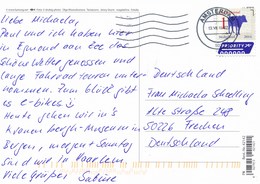 Liebe Michaela,
Paul und ich haben hier
in Egmond aan Zee das
schöne Wetter genossen und
lange Fahrradtouren unter-
nommen. Zum Glück gibt
es e-bikes :)
Heute gehen wir in's
Museum in
Bergen, morgen + Sonntag
sind wir in Haarlem.
Viele Grüße, Sabine
PRIORITY
Deutschland
Frau Michaela
Alte Straße 248
50226 Frechen
Deutschland